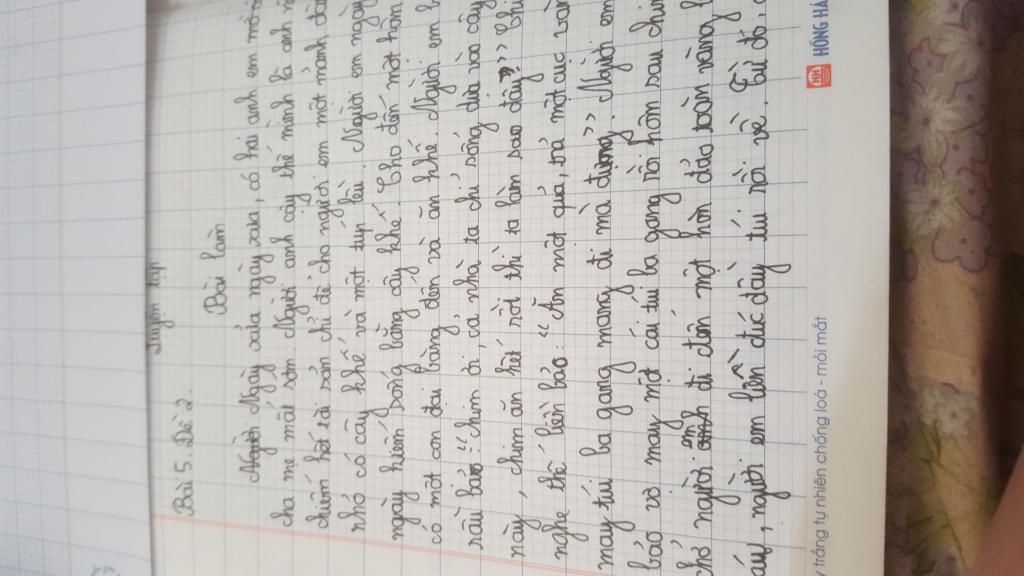 Luyện tập
Bài 5. Đề 2.
Bài làm
Người Ngày xửa ngày xưa, có hai anh em mồ
cha mẹ mất sớm Người anh cậy thế mình là anh
chiếm hết tài sản chỉ để cho người em một mảnh
nhỏ có cây khế và một túp lều. Người em ngày
ngày kiếm sống bằng cây khế. Cho đến một hôm
có một con đại bàng đến và ăn khế. Người em
rầu bảo: "Chim ơi, cả nhà ta chỉ sống dựa vào cây
này, chim ăn hết rồi thì ta làm sao đây?" Chi
nghe thế liền bảo: "Ăn một quả, trả một cục vàn
may túi ba gang mang đi mà đựng". Người em
bảo vợ may một cái túi ba gang rồi hôm sau chim
chở người anh em đi đến một hòn đảo toàn vàng
ấy, người em liền đúc đầy túi rồi về. Từ đó,
y trắng tự nhiên chống loá - mỏi mắt
HH HỒNG HÀ